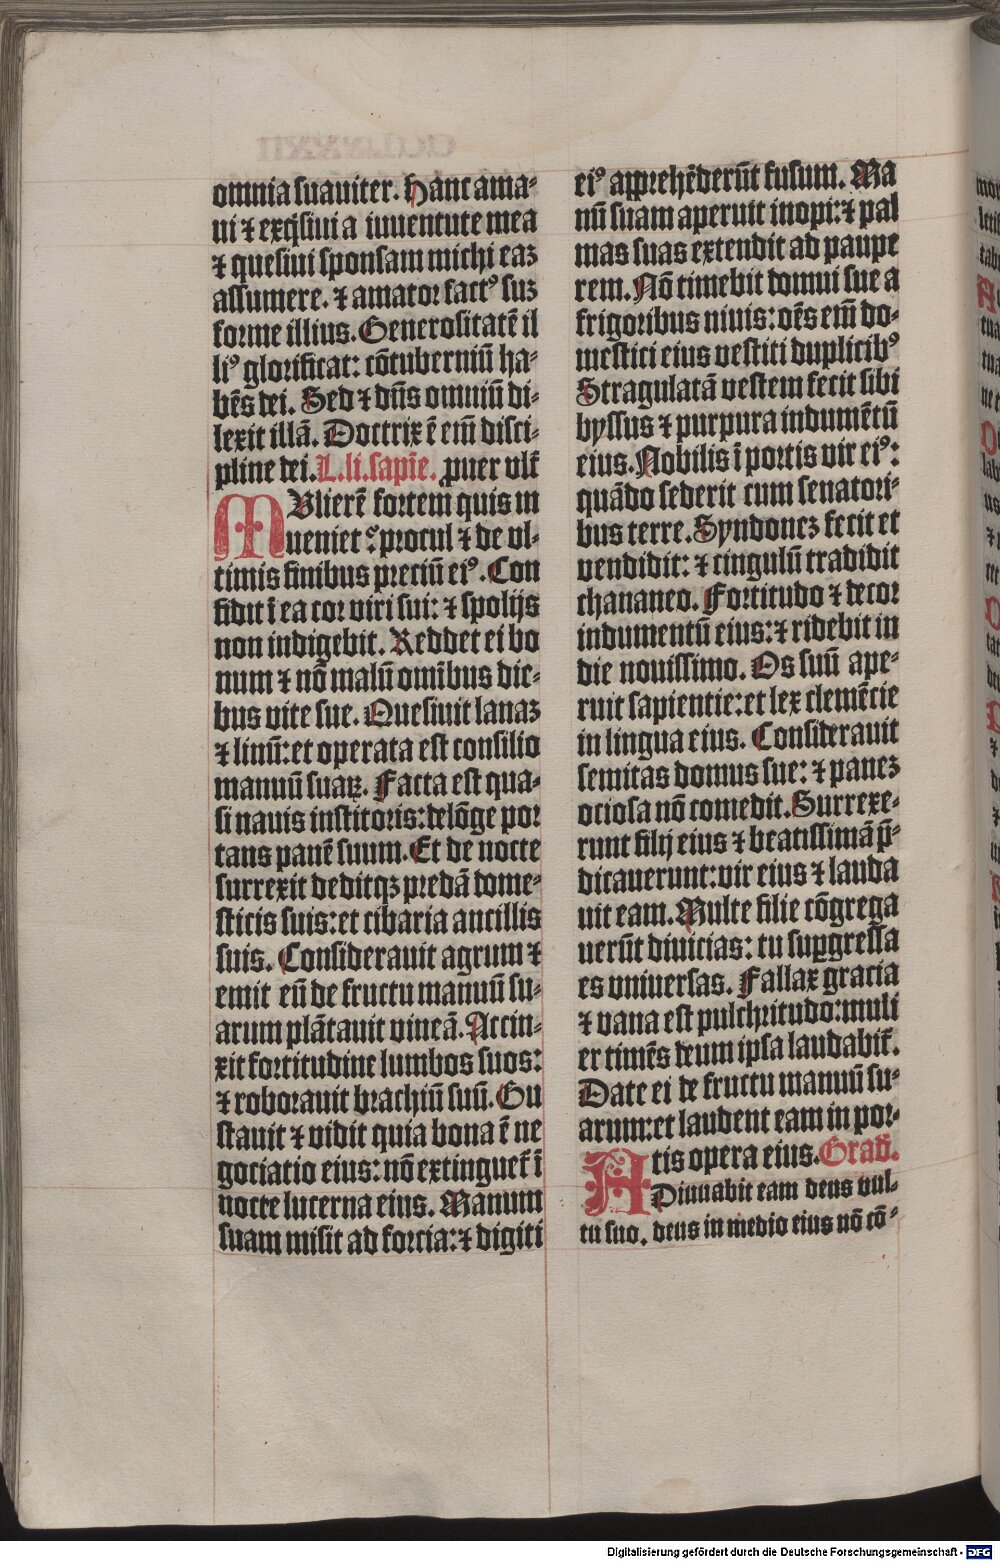 omnia suauiter. Hanc ama-
ui ⁊ exq̇siui a iuuentute mea
⁊ quesiui sponsam michi eaꝫ
assumere. ⁊ amator fact⁹ suꝫ
forme illius. Generositatē il
li⁹ glorificat: cōtuberniū ha-
bēs dei. Sed ⁊ dn̄s omniū di-
lexit illā. Doctrix ē em̄ disci-
pline dei. L. li. sapīe. ꝓuer vlt̄
MVlierē fortem quis in
ueniet? procul ⁊ de vl-
timis finibus preciū ei⁹. Con
fidit ī ea cor viri sui: ⁊ spolijs
non indigebit. Reddet ei bo
num ⁊ nō malū om̄ibus die-
bus vite sue. Quesiuit lanaꝫ
⁊ linū: et operata est consilio
manuū suaꝝ. Facta est qua-
si nauis institoris: delōge por
tans panē suum. Et de nocte
surrexit deditqꝫ predā dome-
sticis suis: et cibaria ancillis
suis. Considerauit agrum ⁊
emit eū de fructu manuū su-
arum plātauit vineā. Accin-
xit fortitudine lumbos suos:
⁊ roborauit brachiū suū. Gu
stauit ⁊ vidit quia bona ē ne
gociatio eius: nō extinguet̄ ī
nocte lucerna eius. Manum
suam misit ad forcia: ⁊ digiti
ei⁹ apprehēderūt fusum. Ma
nū suam aperuit inopi: ⁊ pal
mas suas extendit ad paupe
rem. Nō timebit domui sue a
frigoribus niuis: oēs em̄ do-
mestici eius vestiti duplicib⁹
Stragulatā vestem fecit sibi
byssus ⁊ purpura indumētū
eius. Nobilis ī portis vir ei⁹:
quādo sederit cum senatori-
bus terre. Syndoneꝫ fecit et
vendidit: ⁊ cingulū tradidit
chananeo. Fortitudo ⁊ decor
indumentū eius: ⁊ ridebit in
die nouissimo. Os suū ape-
ruit sapientie: et lex clemēcie
in lingua eius. Considerauit
semitas domus sue: ⁊ paneꝫ
ociosa nō comedit. Surrexe-
runt filij eius ⁊ beatissimā p̄-
dicauerunt: vir eius ⁊ lauda
uit eam. Multe filie cōgrega
uerūt diuicias: tu suꝑgressa
es vniuersas. Fallax gracia
⁊ vana est pulchritudo: muli
er timēs deum ipsa laudabit̄.
Date ei de fructu manuū su-
arum: et laudent eam in por-
tis opera eius. Grad̄.
ADiuuabit eam deus vul-
tu suo. deus in medio eius nō cō-
Digitalisierung gefördert durch die Deutsche Forschungsgemeinschaft - DFG